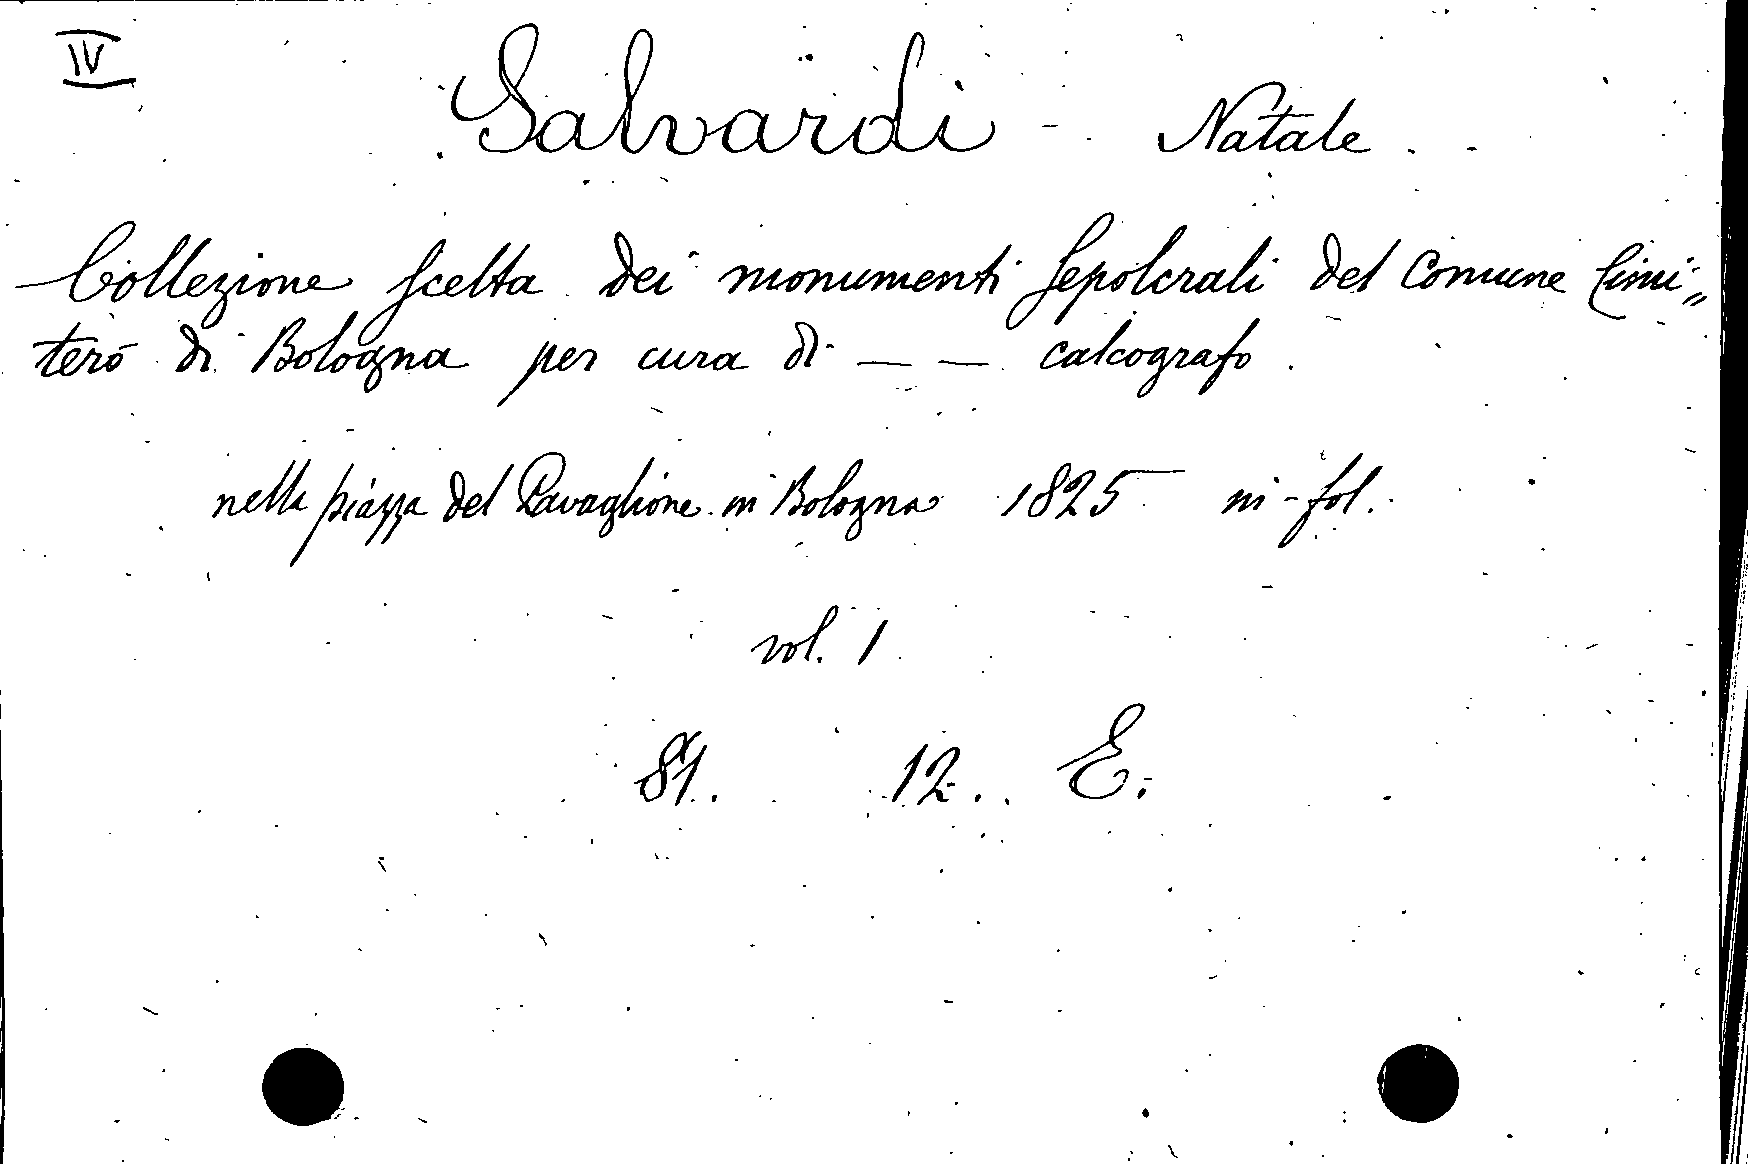 IV
Salvardi Natale
Collezione scelta dei monumenti sepolcrali del Comune Cimi„
tero di Bologna per cura di — — calcografo.
nella piazza del Pavaglione in Bologna 1825 in-fol.
vol. 1
81. 12. E.